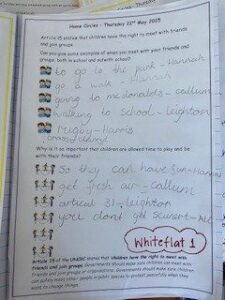 Home Circles - Thursday 22nd May 2025
Article 15 states that children have the right to meet with friends
and join groups
Can you give some examples of when you meet with your friends and
groups, both in school and outwith school?
to go to the park - Hannah
go a walk - Hannah
going to mcdonalds - callum
walking to school - leighton
rugby - Harris
Why is it so important that children are allowed time to play and be
with their friends?
So they can have fun - Hannah
get fresh air - Callum
artical 31 - leighton
you dont get
Whiteflat 1
Article 15 of the UNCRC states that children have the right to meet with
friends and join groups. Governments should make sure children can meet with
friends and join groups or organisations. Governments should make sure children
can safely meet other people in public spaces to protest peacefully when they
want to change things.